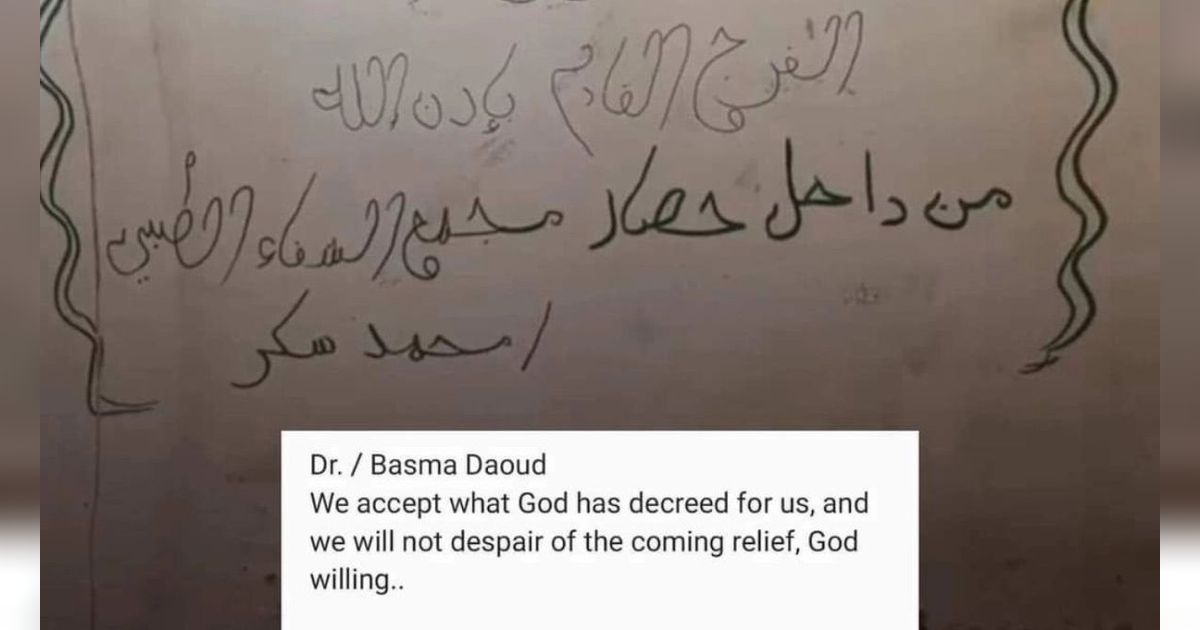 الفرج القادم بإذن الله
من داخل حصار مجمع الشفاء الطبي
/محمد سكر
Dr. / Basma Daoud
We accept what God has decreed for us, and
we will not despair of the coming relief, God
willing..